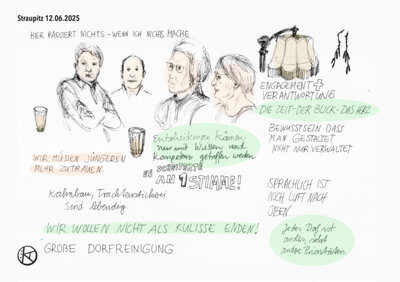 Straupitz 12.06.2025
HIER PASSIERT NICHTS - WENN ICH NICHTS MACHE
ENGAGEMENT +
VERANTWORTUNG
DIE ZEIT - DER BLICK - DAS HERZ
Entscheidungen können
nur mit Wissen und
Kompetenz getroffen werden
BEWUSSTSEIN DASS
MAN GESTALTET
NICHT NUR VERWALTET
WIR MÜSSEN JÜNGEREN
MEHR ZUTRAUEN.
ES SCHEITERTE
AN 1 STIMME!
Kahnbau, Trachtenstickerei
sind lebendig
SPRACHLICH IST
NOCH LUFT NACH
OBEN.
WIR WOLLEN NICHT ALS KULISSE ENDEN!
Jedes Dorf ist
anders, setzt
andere Prioritäten.
GROẞE DORFREINIGUNG